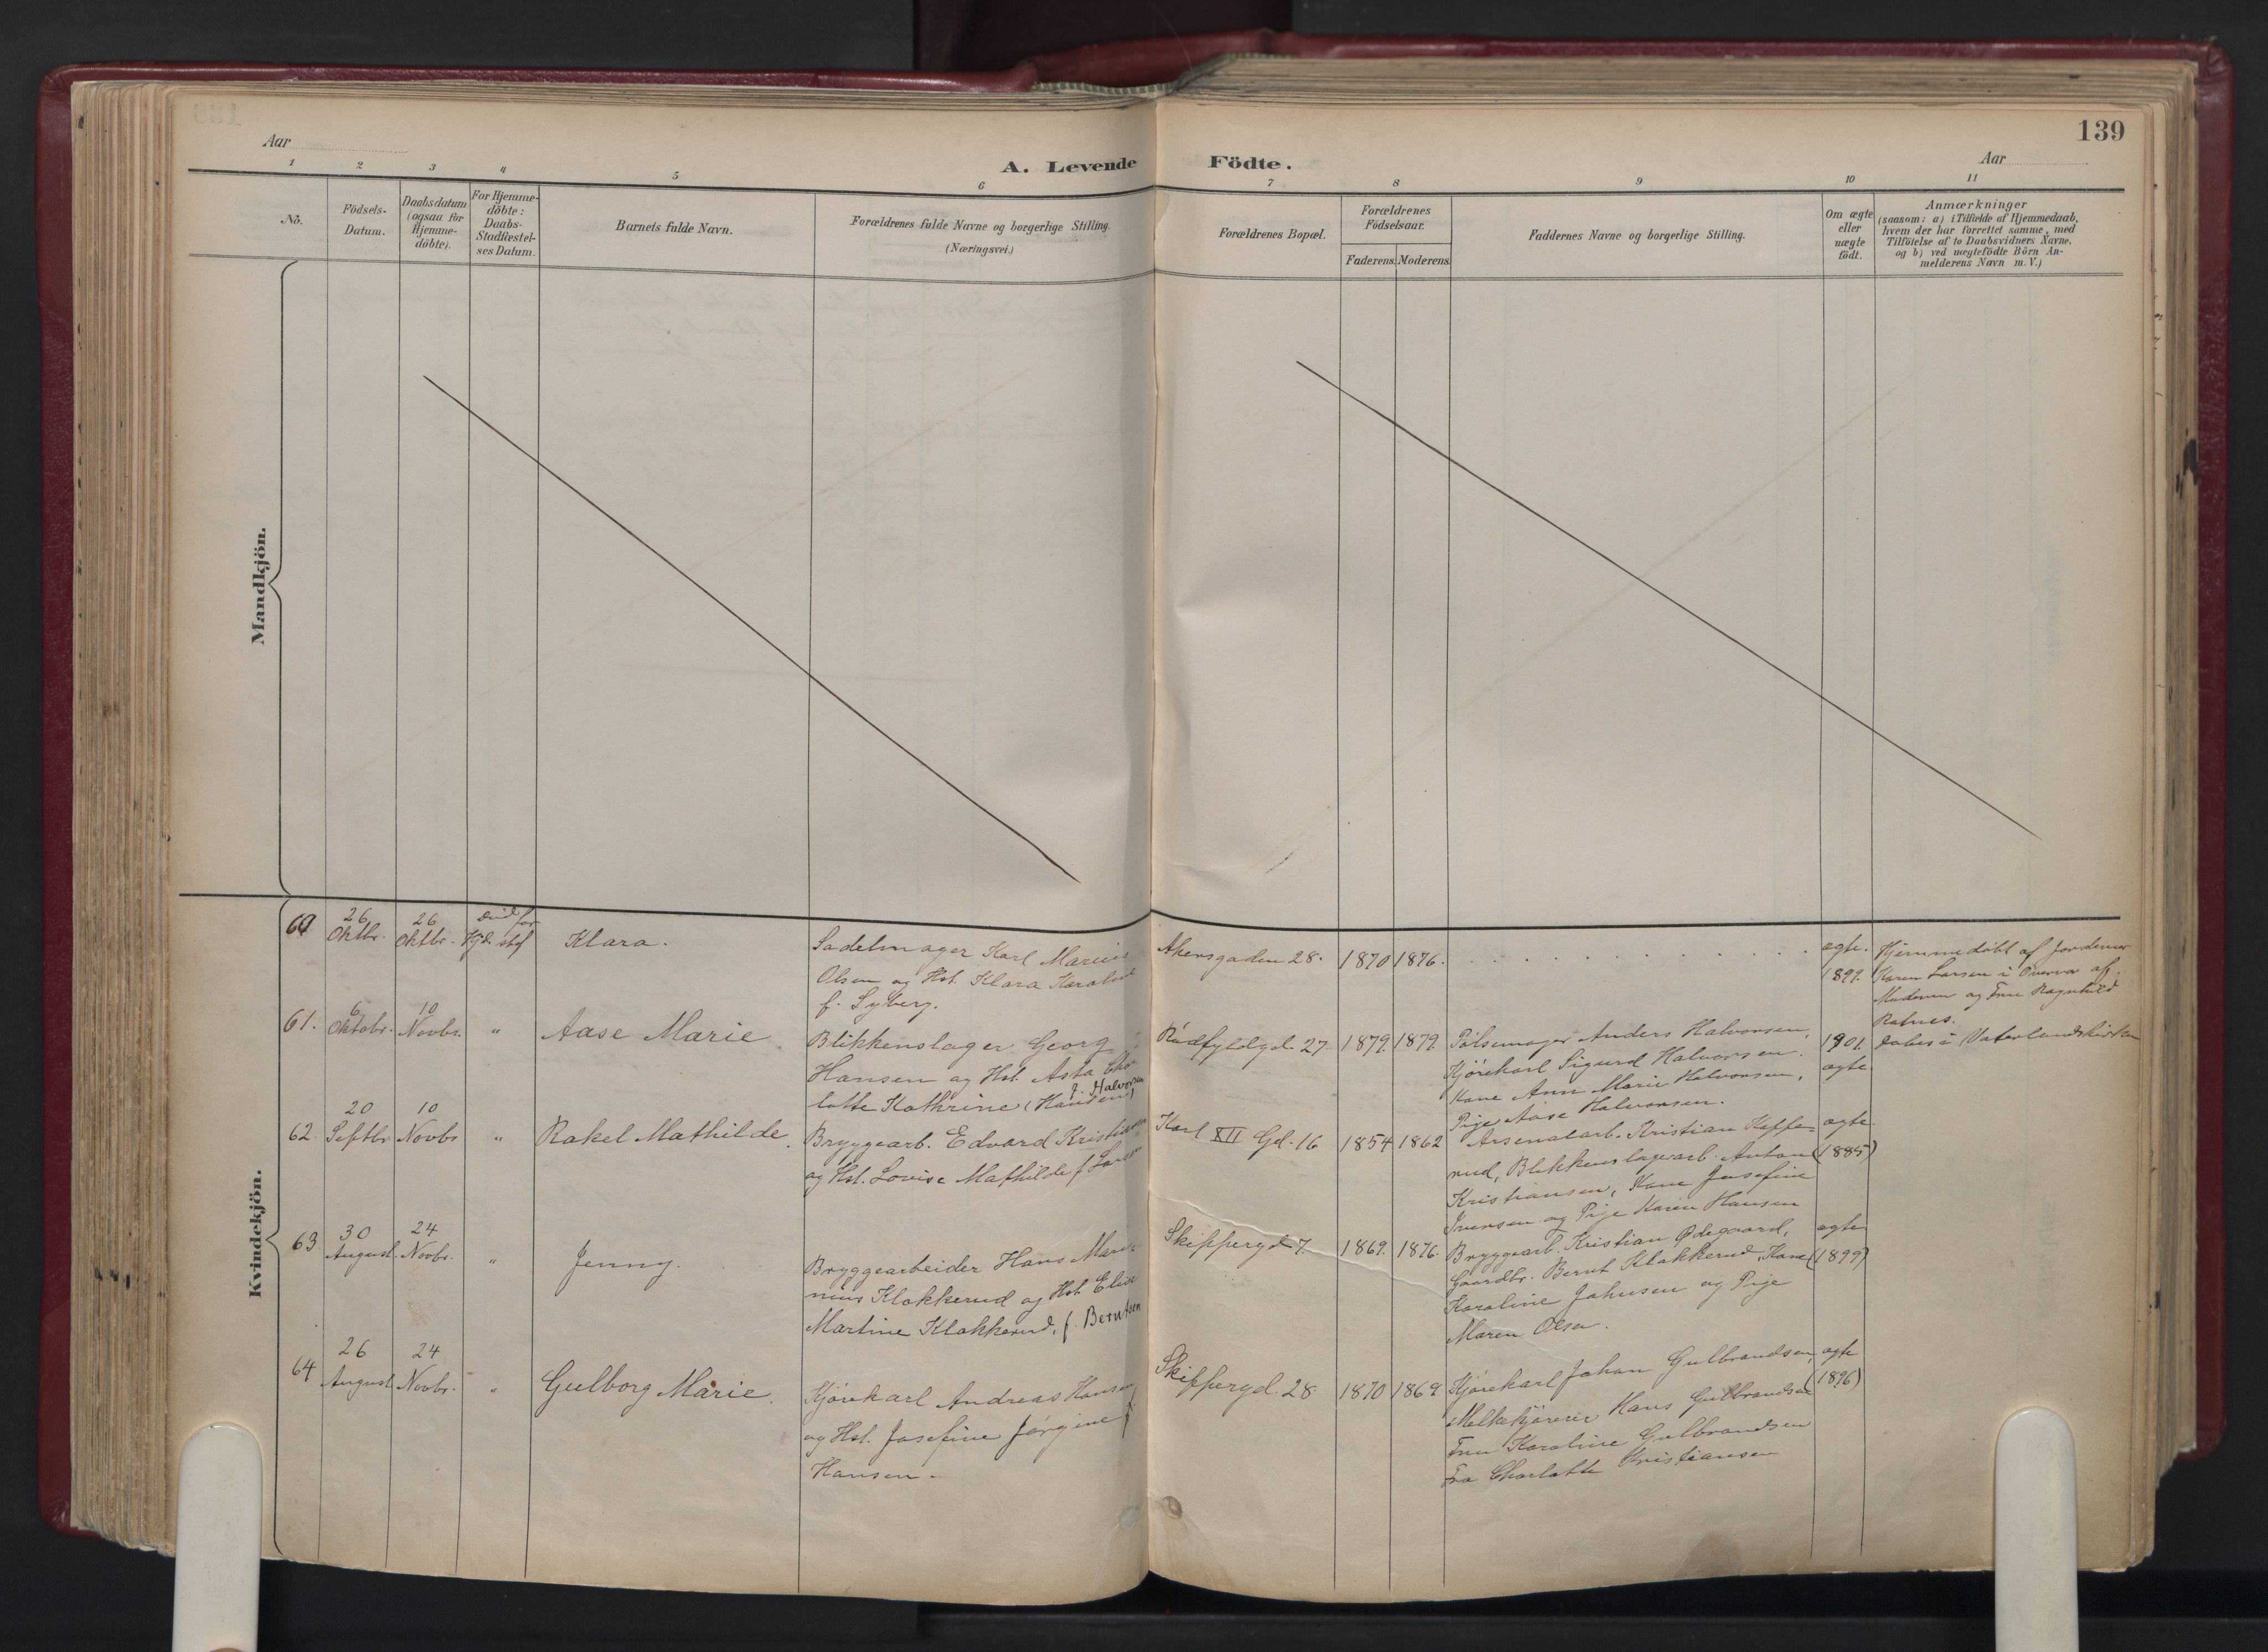 139
Aar
A. Levende Födte.
Aar
1 2 3 4 5 6 7 8 9 10 11
No.
Födsels-
Datum.
Daabsdatum
(ogsaa for
Hjemme-
döbte).
For Hjemme-
döbte:
Daabs-
Stadfæstel-
ses Datum.
Barnets fulde Navn.
Forældrenes fulde Navne og borgerlige Stilling.
(Næringsvei.)
Forældrenes Bopæl.
Forældrenes
Födselsaar.
Faderens. Moderens.
Faddernes Navne og borgerlige Stilling.
Om ægte
eller
uægte
födt.
Anmærkninger
(saasom: a) i Tilfælde af Hjemmedaab,
hvem der har forrettet samme, med
Tilföielse af to Daabsvidners Navne,
og b) ved uægtefödte Börn An-
melderens Navn m. V.)
Mandkjön.
Kvindekjön.
60
26
Oktbr.
26
Oktbr.
död før
Hjd. stf
Klara.
Sadelmager Karl Marius
Olsen og Hst. Klara
f. Syberg.
Akersgaden 28.
1870 1876.
ægte.
1899.
Hjemmedøbt af Jordemor
Karen Larsen i Overvær af
Moderen og Fru Ragnhild
61.
6
Oktobr.
10
Novbr.
"
Aase Marie
Blikkenslager Georg
Hansen og Hst. Asta Cha
lotte Kathrine (Hansen)
f. Halvorsen
Rødfyldgd. 27
1879. 1879.
Pølsemager Anders Halvorsen,
Kjørekarl Sigurd Halvorsen.
Kone Ann Marie Halvorsen,
Pige Aase Halvorsen.
1901.
ægte
Døbt i Vaterlandskirken
62.
20
Septbr
10
Novbr
"
Rakel Mathilde.
Bryggearb. Edvard Kristiansen
og Hst. Lovise Mathilde f. Larsen
Karl XII Gd. 16
1854 1862
Arsenalarb. Kristian Keppe=
rud, Blikkenslagerarb. Anton
Kristiansen, Kone Josefine
Iversen og Pige Karen Hansen
ægte.
(1885)
63
30
August.
24
Novbr.
"
Jenny.
Bryggearbeider Hans Mari=
nius Klokkerud og Hst. Elise
Martine Klokkerud, f. Berntsen
Skippergd 7.
1869. 1876.
Bryggearb. Kristian Ødegaard,
Gaardbr. Bernt Klokkerud, Kone
Karoline Johnsen og Pige
Maren Olsen.
ægte
(1899)
64
26
August
24
Novbr.
"
Gulborg Marie.
Kjørekarl Andreas Hansen
og Hst. Josefine Jørgine f.
Hansen.
Skippergd. 28
1870 1869
Kjørekarl Johan Gulbrandsen,
Melkekjører Hans Gulbrandsen
Fru Karoline Gulbrandsen
Fru Charlotte Kristiansen
ægte
(1896)